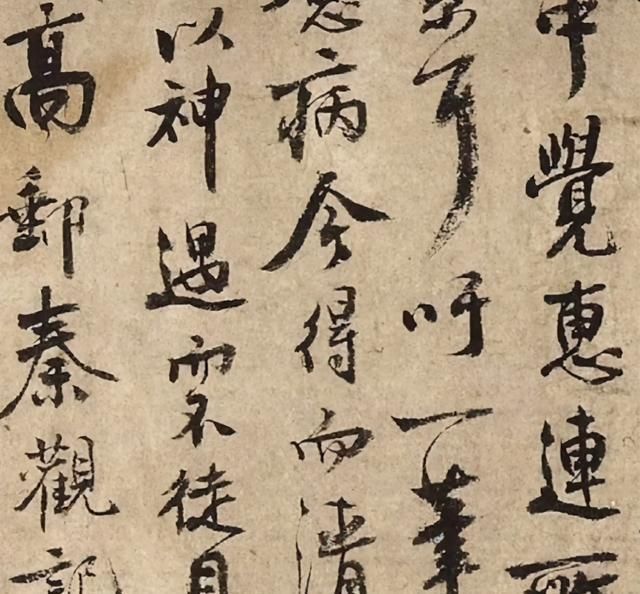 覺惠連
耳吁一筆
病今得而清
以神遇而不徒目
高郵秦觀記